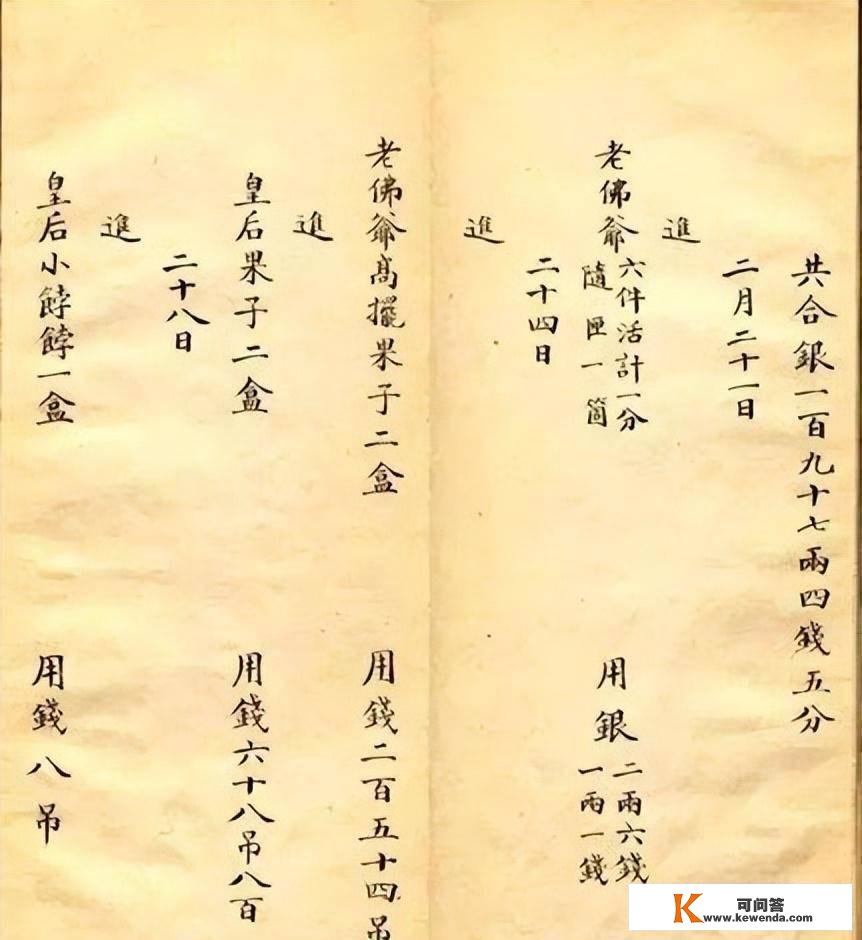 共合銀一百九十七兩四錢五分
二月二十一日
進
老佛爺六件活計一分 用銀二兩六錢
隨匣一箇 一兩一錢
二十四日
進
老佛爺高擺果子二盒 用錢二百五十四吊
進
皇后果子二盒 用錢六十八吊八百
二十八日
進
皇后小餑餑一盒 用錢八吊
可问答
www.kewenda.com